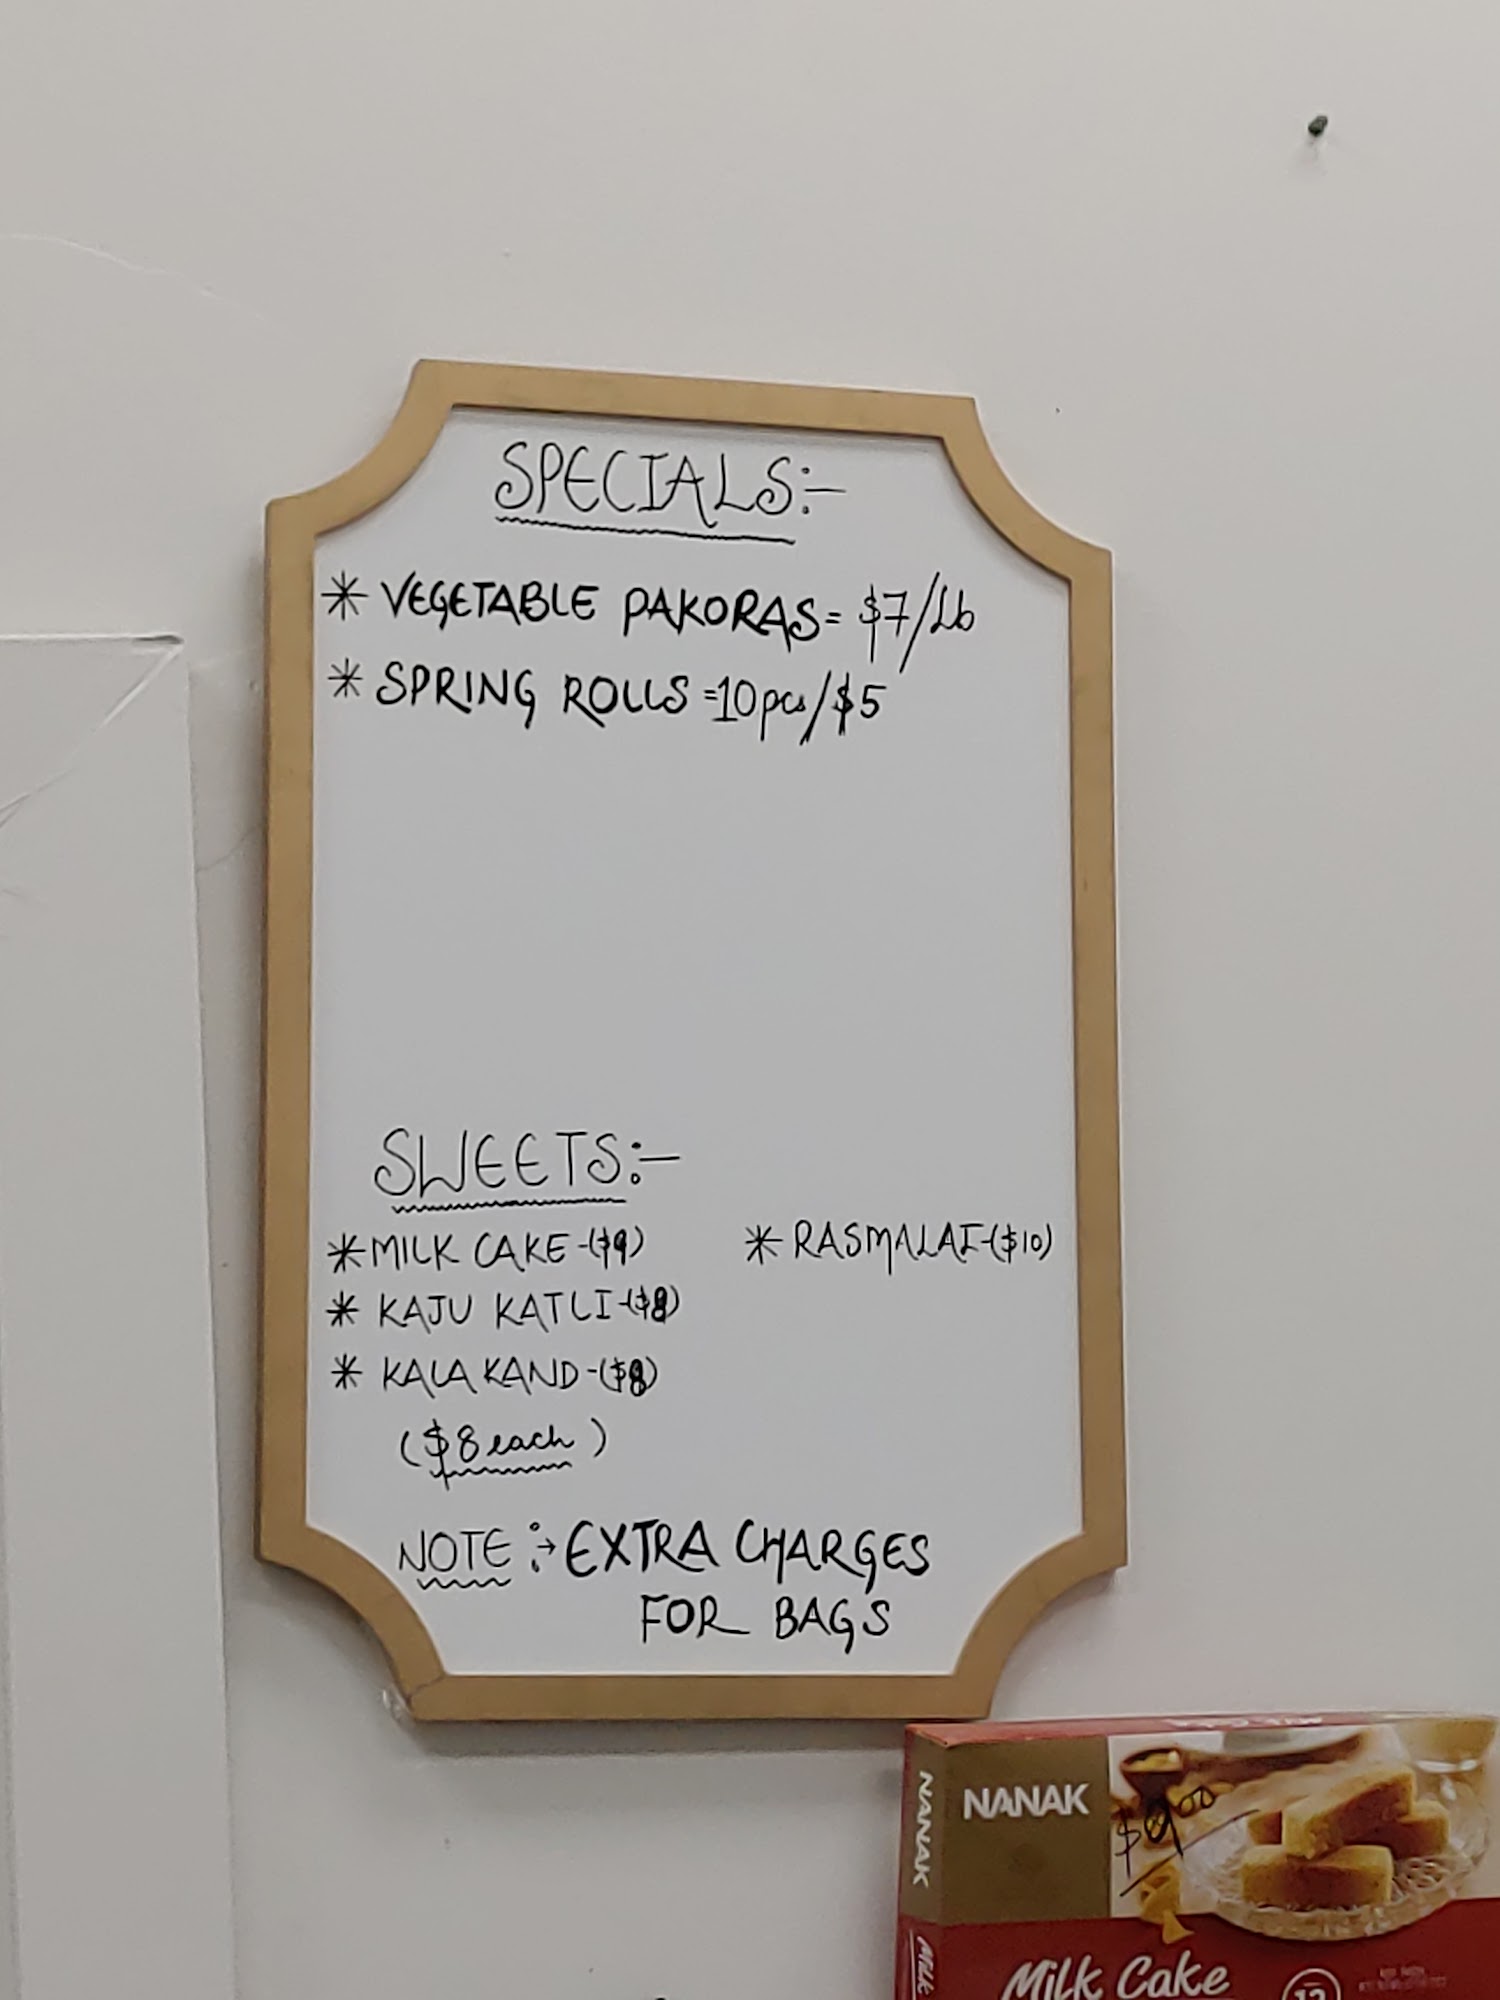 SPECIALS:-
* VEGETABLE PAKORAS = $7/Lb
* SPRING ROLLS =10pcs/$5
SWEETS:-
* MILK CAKE -($9)
* RASMALAI-($10)
* KAJU KATLI-($8)
* KALAKAND-($8)
($8 each)
NOTE :→ EXTRA CHARGES
FOR BAGS
MILK CAKE
NANAK
NANAK
$9.00
MILK
Milk Cake
12